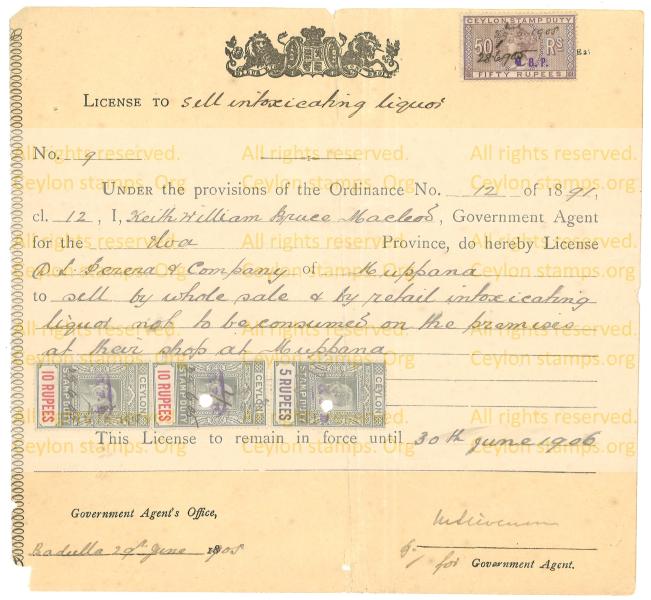 CEYLON STAMP DUTY
50 Rs
FIFTY RUPEES
LICENSE TO sell intoxicating liquor
No. 9
UNDER the provisions of the Ordinance No. 12 of 1891,
cl. 12, I, Keith William Bruce Macleod, Government Agent
for the Uva Province, do hereby License
D. L. Perera & Company of Muppana
to sell by whole sale & by retail intoxicating
liquor not to be consumed on the premises
at their shop at Muppana
10 RUPEES STAMP DUTY CEYLON
10 RUPEES STAMP DUTY CEYLON
5 RUPEES STAMP DUTY CEYLON
This License to remain in force until 30th June 1906
Government Agent's Office,
Badulla 29th June 1905
for Government Agent.
All rights reserved.
Ceylon stamps. Org
All rights reserved.
Ceylon stamps. Org
All rights reserved.
Ceylon stamps. Org